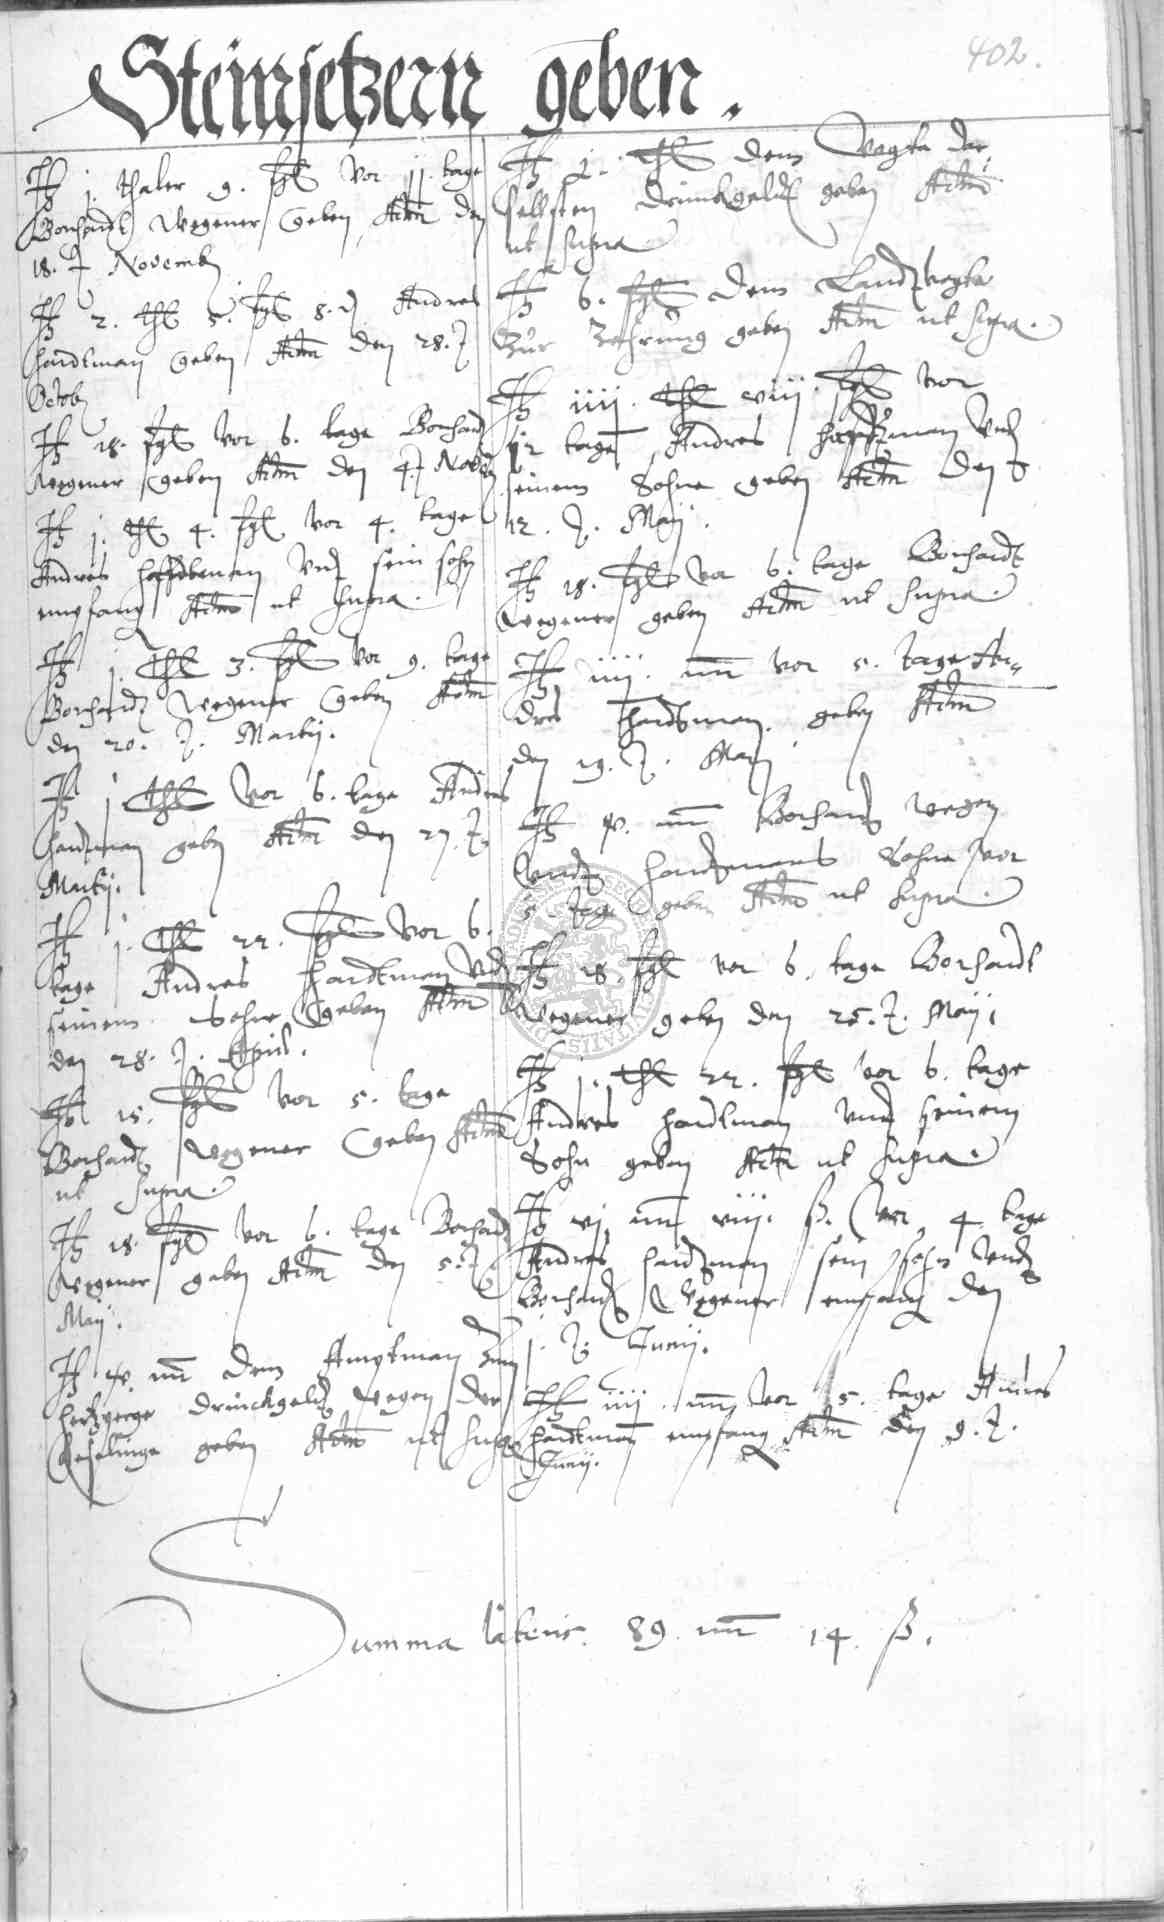 402.
Steinsetzern geben.
It j. thaler 9. sgl vor 11. tage
Borhardt Wegener geben Actum den
18. Novemb
It 2. thl 5. sgl 8. d Andres
Hardtman geben Actum den 28.
Octob
It 18. sgl vor 6. tage Borhard
Wegener geben Actum den 4. Novemb
It j. thl 4. sgl vor 4. tage
Andres Hardtman Und sein sohn
empfang Actum ut supra.
It j. thl 3. sgl vor 9. tage
Borhardt Wegener geben Actum
den 20. Martij.
It j thl vor 6. tage Andres
Hardtman geben Actum den 27.
Martij.
It j. thl 22. sgl vor 6.
tage Andres Hardtman Und
seinem Sohne geben Actum
den 28. April.
It 15. sgl vor 5. tage
Borhardt Wegener geben Actum
ut supra.
It 18. sgl vor 6. tage Borhardt
Wegener geben Actum den 5.
Maij.
It dem Amptman Zum
drinckgeldt wegen der
geben Actum ut supra
It thl dem Vogte da
selbsten Drinckgeldt geben Actum
ut supra
It 6. sgl dem Landtvogte
Zur Zehrung geben Actum ut supra.
It iiij. thl viij. sgl vor
12 tage Andres Hardtman Und
seinem Sohne geben Actum den
12. Maij.
It 18. sgl vor 6. tage Borhardt
Wegener geben Actum ut supra.
It iiij. vor 5. tage An-
dres Hardtman geben Actum
den 19. Maij
It Borhardt Wegen
Und Hardtmans Sohne vor
5 tage geben Actum ut supra.
It 18. sgl vor 6. tage Borhardt
Wegener geben den 25. Maij.
It j. thl 22. sgl vor 6. tage
Andres Hardtman Und seinem
Sohn geben Actum ut supra.
It vj viij. ß. vor 4 tage
Andres Hardtman sein sohn Und
Borhardt Wegener empfang den
j. Junij.
It iiij vor 5. tage Andres
Hardtman empfang Actum den 9.
Junij.
Summa lateris. 89 14. ß.